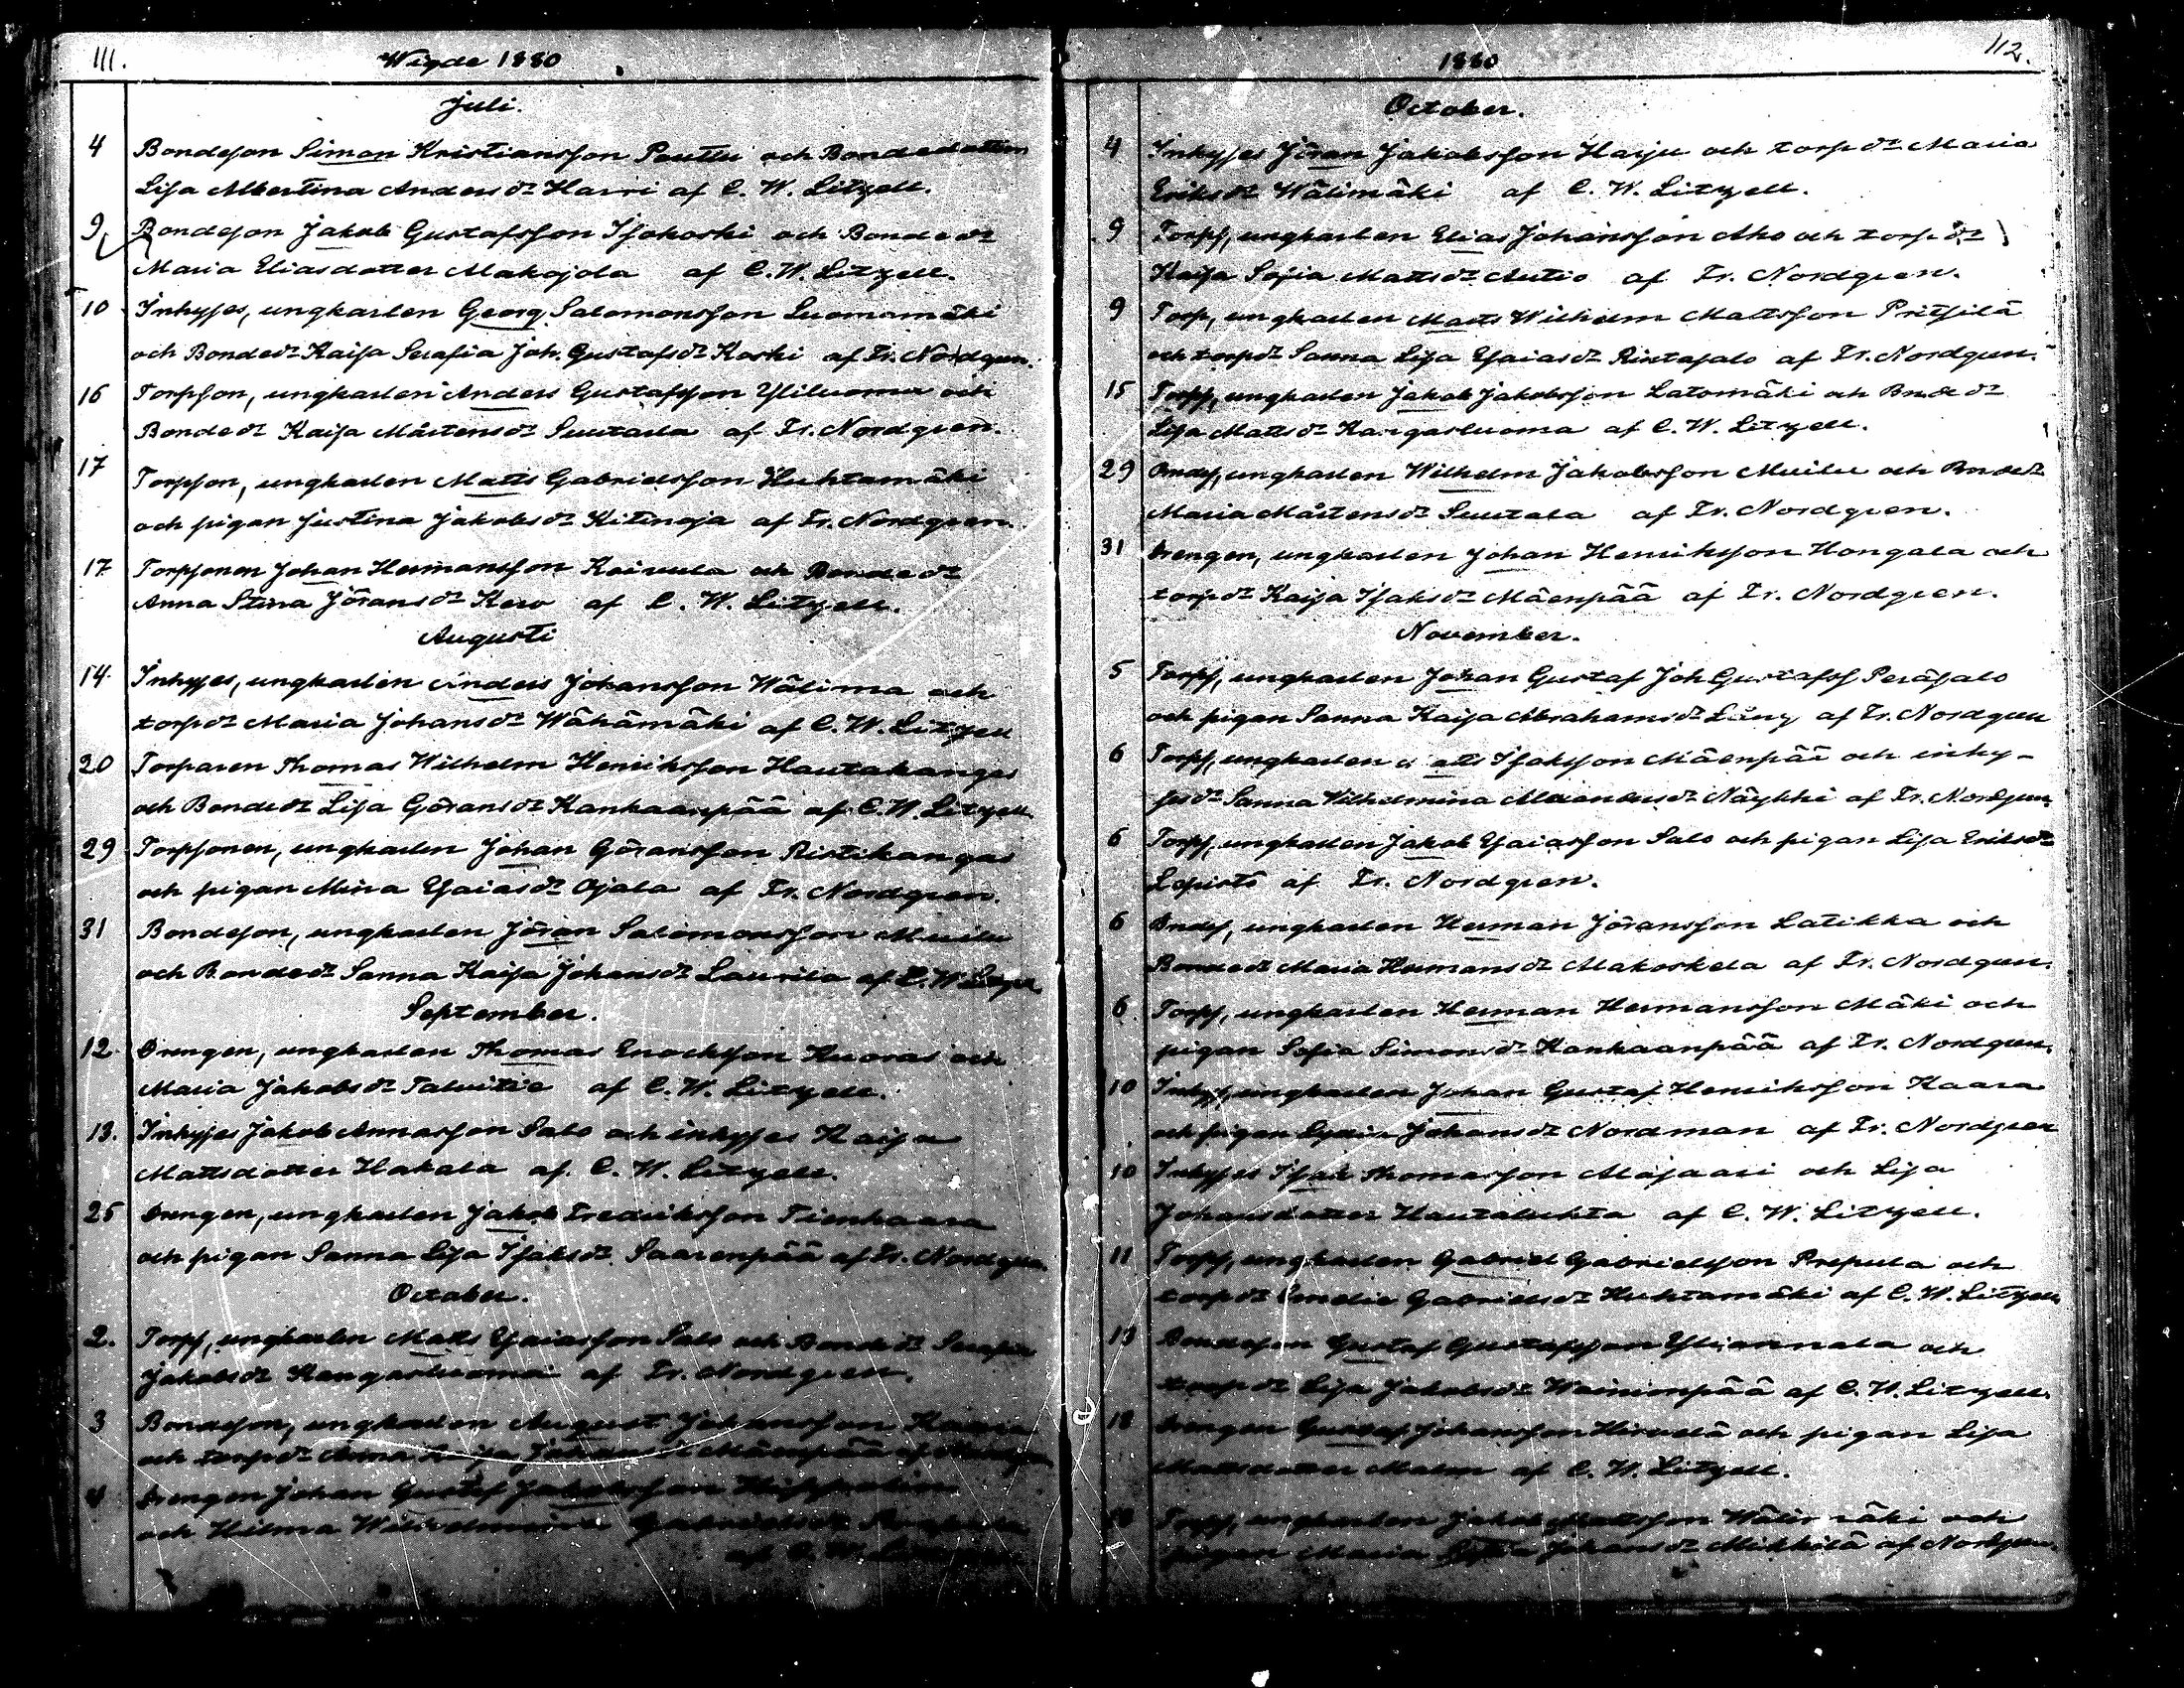 111.
Wigde 1880
Juli.
4 Bondeson Simon Kristiansson Pouttu och Bondedottren
Lisa Albertina Andersdr Harri af C. W. Litzell.
9 Bondeson Jakob Gustafsson Isokoski och Bondedr
Maria Eliasdotter Makojola af C. W. Litzell.
10 Inhyses, ungkarlen Georg Salomonsson Luomamäki
och Bondedr Kaisa Serafia Joh. Gustafsdr Koski af Fr. Nordgren.
16 Torpson, ungkarlen Anders Gustafsson Yliluoma och
Bondedr Kaisa Mårtensdr Luutala af Fr. Nordgren.
17 Torpson, ungkarlen Matts Gabrielsson Huhtamäki
och pigan Justina Jakobsdr Kitinoja af Fr. Nordgren.
17 Torpsonen Johan Hermansson Koivula och Bondedr
Anna Stina Jöransdr Kero af C. W. Litzell.
Augusti
14. Inhyses, ungkarlen Anders Johansson Wälimaa och
torpdr Maria Johansdr Wähämäki af C. W. Litzell
20 Torparen Thomas Wilhelm Henriksson Hautakangas
och Bondedr Lisa Göransdr Kankaanpää af C. W. Litzell.
29 Torpsonen, ungkarln Johan Göransson Ristikangas
och pigan Mina Esaiasdr Ojala af Fr. Nordgren.
31 Bondeson, ungkarlen Jöran Salomonsson Muilu
och Bondedr Sanna Kaisa Johansdr Laurila af C. W. Litzell.
September.
12. Drengen, ungkarlen Thomas Enocksson Kuoras och
Maria Jakobsdr Talvitie af C. W. Litzell.
13. Inhyses Jakob Annasson Salo och inhyses Kaisa
Mattsdotter Hakala af C. W. Litzell.
25 Drengen, ungkarlen Jakob Fredriksson Tienhaara
och pigan Sanna Lisa Isaksdr Saarenpää af Fr. Nordgren.
October.
2. Torps, ungkarln Matts Esaiasson Salo och Bondedr Serafia
Jakobsdr Kangasluoma af Fr. Nordgren.
3 Bondeson, ungkarlen August Johansson
och torpdr Anna Kaisa Mäenpää af
4 Drengen Johan Gustaf
och Hilma Wilhelmina
af C. W.
1880
112.
October.
4 Inhyses Jöran Jakobsson Harju och torpdr Maria
Eriksdr Wälimäki af C. W. Litzell.
9 Torps, ungkarlen Elias Johansson Aho och torpdr
Kaisa Sofia Mattsdr Autio af Fr. Nordgren.
9 Torp, ungkarlen Matts Wilhelm Mattsson Pritsilä
och torpdr Sanna Lisa Esaiasdr Rintasalo af Fr. Nordgren.
15 Torps, ungkarlen Jakob Jakobsson Latomäki och Bndedr
Lisa Mattsdr Kangasluoma af C. W. Litzell.
29 Bndes, ungkarlen Wilhelm Jakobsson Muilu och Bndedr
Maria Mårtensdr Luutala af Fr. Nordgren.
31 Drengen, ungkarlen Johan Henriksson Hongala och
torpdr Kaisa Isaksdr Mäenpää af Fr. Nordgren.
November.
5 Torps, ungkarlen Johan Gustaf Joh Gustafss Peräsalo
och pigan Sanna Kaisa Abrahamsdr Ljung af Fr. Nordgren
6 Torps, ungkarlen Matts Isaksson Mäenpää och inhy-
sesdr Sanna Wilhelmina af Fr. Nordgren
6 Torps, ungkarlen Jakob Esaiasson Salo och pigan Lisa Eriksdr
Lepistö af Fr. Nordgren.
6 Bndes, ungkarlen Herman Jöransson Latikka och
Bondedr Maria Hermansdr Alakoskela af Fr. Nordgren.
6. Torps, ungkarlen Herman Hermansson Mäki och
pigan Sofia Simonsdr Kankaanpää af Fr. Nordgren.
10 Inhys, ungkarlen Johan Gustaf Henriksson Kaara
och pigan Lydia Johansdr Nordman af Fr. Nordgren
10 Inhyses Isak Thomasson Alajaari och Lisa
Johansdotter Hautaluhta af C. W. Litzell.
11 Torps, ungkarlen Gabriel Gabrielsson Prepula och
torpdr Emelie Gabrielsdr Huhtamäki af C. W. Litzell
13 Bondeson Gustaf Gustafsson Yliannala och
torpdr Lisa Jakobsdr Wainionpää af C. W. Litzell.
18 Drengen Gustaf Johansson Hirvelä och pigan Lisa
Mattsdotter Malm af C. W. Litzell.
Torps, ungkarlen Jakob Mattsson och
pigan Maria Johansdr Mikkilä af Nordgren.